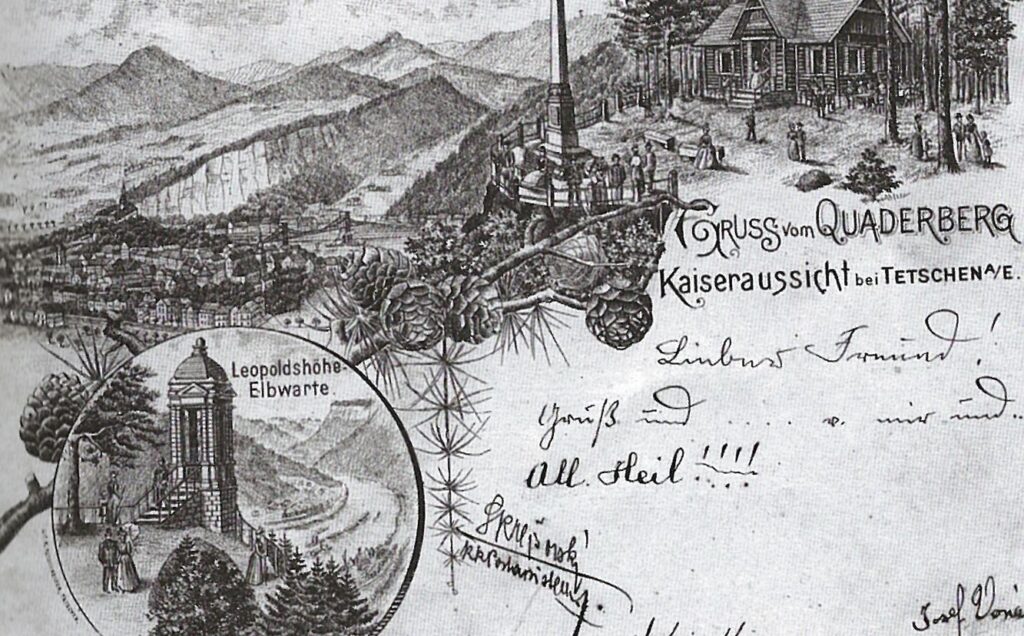 GRUSS vom QUADERBERG
Kaiseraussicht bei TETSCHEN A/E.
Leopoldshöhe-
Elbwarte.
Lieber Freund!
Gruß und .... v. mir und..
All Heil!!!!
Josef